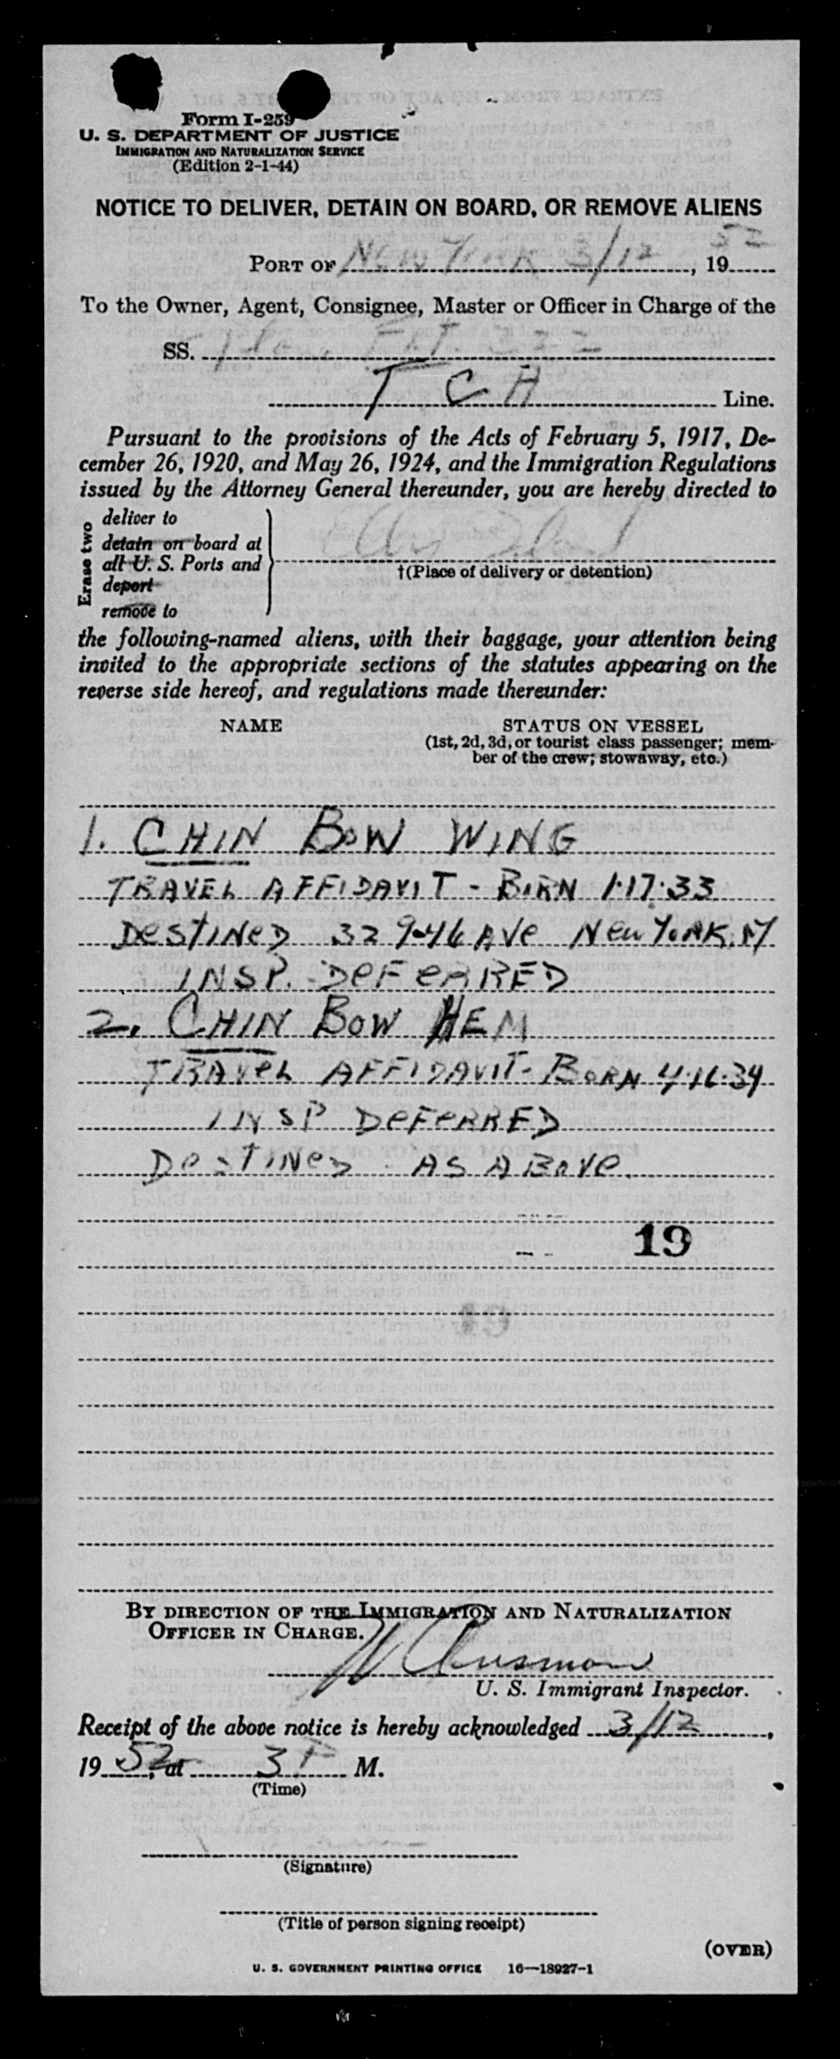 Form I-259
U. S. DEPARTMENT OF JUSTICE
IMMIGRATION AND NATURALIZATION SERVICE
(Edition 2-1-44)
NOTICE TO DELIVER, DETAIN ON BOARD, OR REMOVE ALIENS
PORT OF New York 3/12, 19 52
To the Owner, Agent, Consignee, Master or Officer in Charge of the
SS. Plane Flt. 222
T C A Line.
Pursuant to the provisions of the Acts of February 5, 1917, De-
cember 26, 1920, and May 26, 1924, and the Immigration Regulations
issued by the Attorney General thereunder, you are hereby directed to
Erase two
deliver to
detain on board at
all U. S. Ports and
deport
remove to
Ellis Island
†(Place of delivery or detention)
the following-named aliens, with their baggage, your attention being
invited to the appropriate sections of the statutes appearing on the
reverse side hereof, and regulations made thereunder:
NAME
STATUS ON VESSEL
(1st, 2d, 3d, or tourist class passenger; mem-
ber of the crew; stowaway, etc.)
1. CHIN BOW WING
TRAVEL AFFIDAVIT - BORN 1·17·33
DESTINED 329-46 AVE NEW YORK.
INSP. DEFERRED
2. CHIN BOW HEM
TRAVEL AFFIDAVIT - BORN 4·16·34
INSP DEFERRED
DESTINED AS ABOVE.
19
BY DIRECTION OF THE IMMIGRATION AND NATURALIZATION
OFFICER IN CHARGE.
U. S. Immigrant Inspector.
Receipt of the above notice is hereby acknowledged 3/12,
19 52, at 3 P M.
(Time)
(Signature)
(Title of person signing receipt)
(OVER)
U. S. GOVERNMENT PRINTING OFFICE 16—18927-1